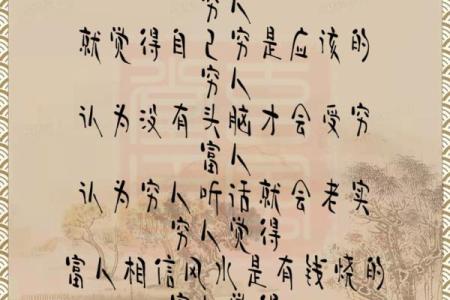 穷人
就觉得自己穷是应该的
穷人
认为没有头脑才会受穷
富人
认为穷人听话就会老实
穷人觉得
富人相信风水是有钱烧的
富人觉得